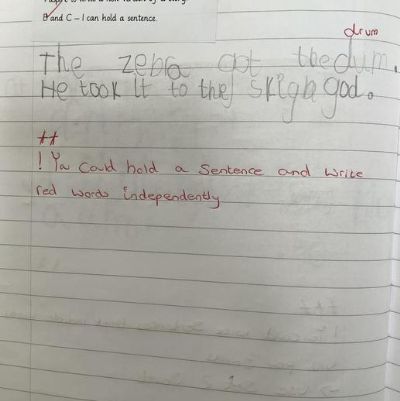 B and C – I can hold a sentence.
drum
the zebra got the dum.
He took it to the skigh god.
!
You could hold a sentence and write
red words independently